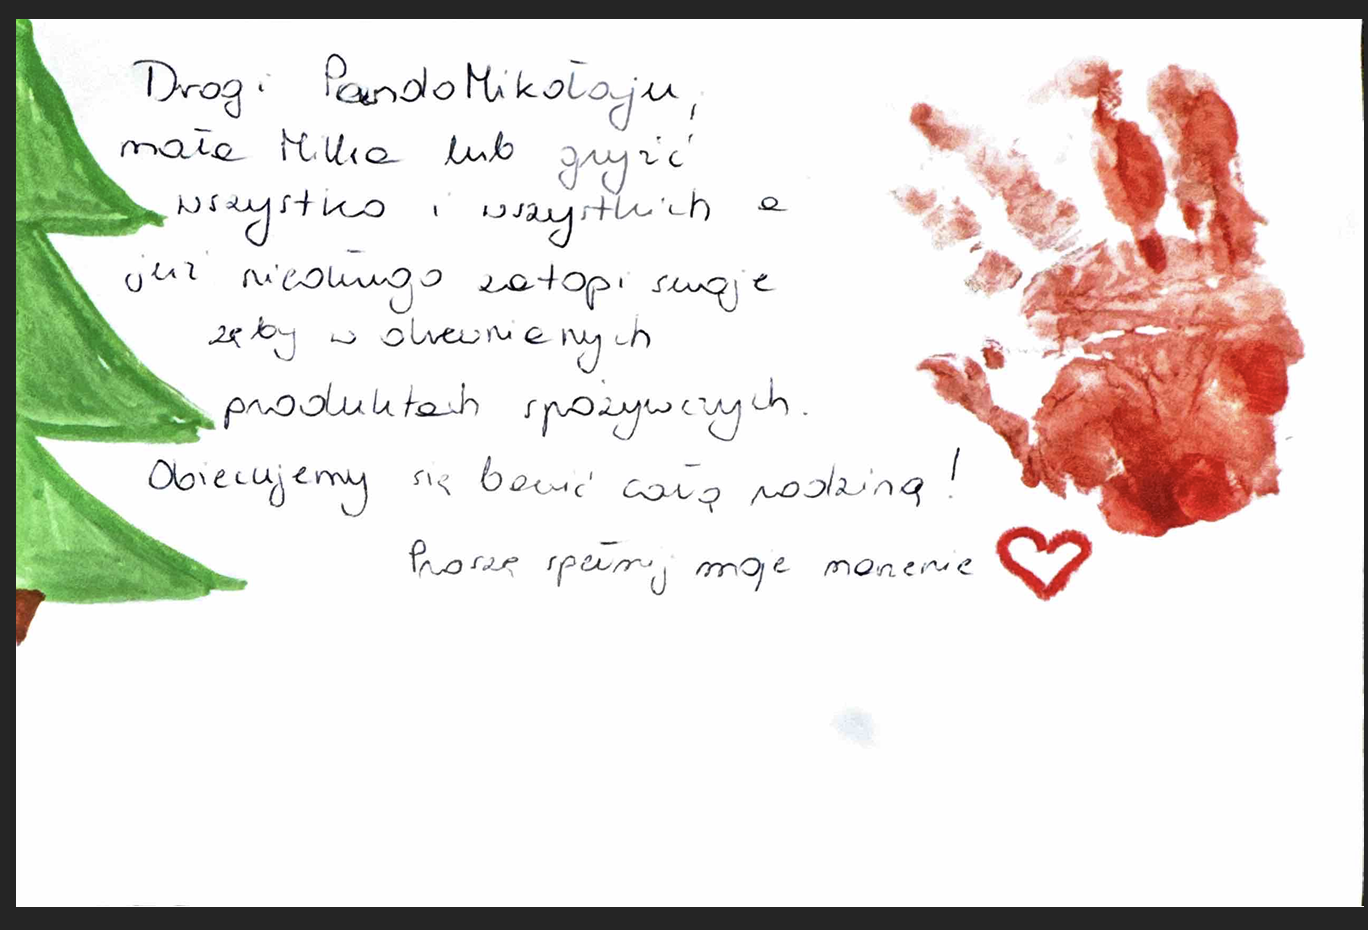 Drogi PandoMikołaju,
mała Milka lub gryźć
wszystko i wszystkich a
już niedługo zatopi swoje
zęby w drewnianych
produktach spożywczych.
Obiecujemy się bawić całą rodziną!
Proszę spełnij moje marzenie